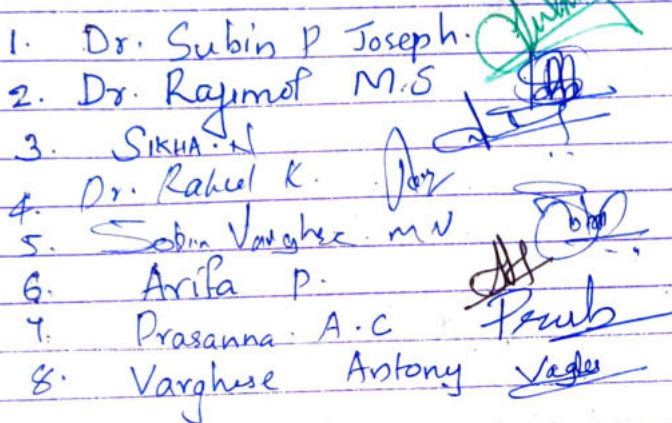 1. Dr. Subin P Joseph.
2. Dr. Rajimol M.S
3. SIKHA.N
4. Dr. Rahul K.
5. Sobin Varghese. M N
6. Arifa P.
7. Prasanna. A.C
8. Varghese Antony